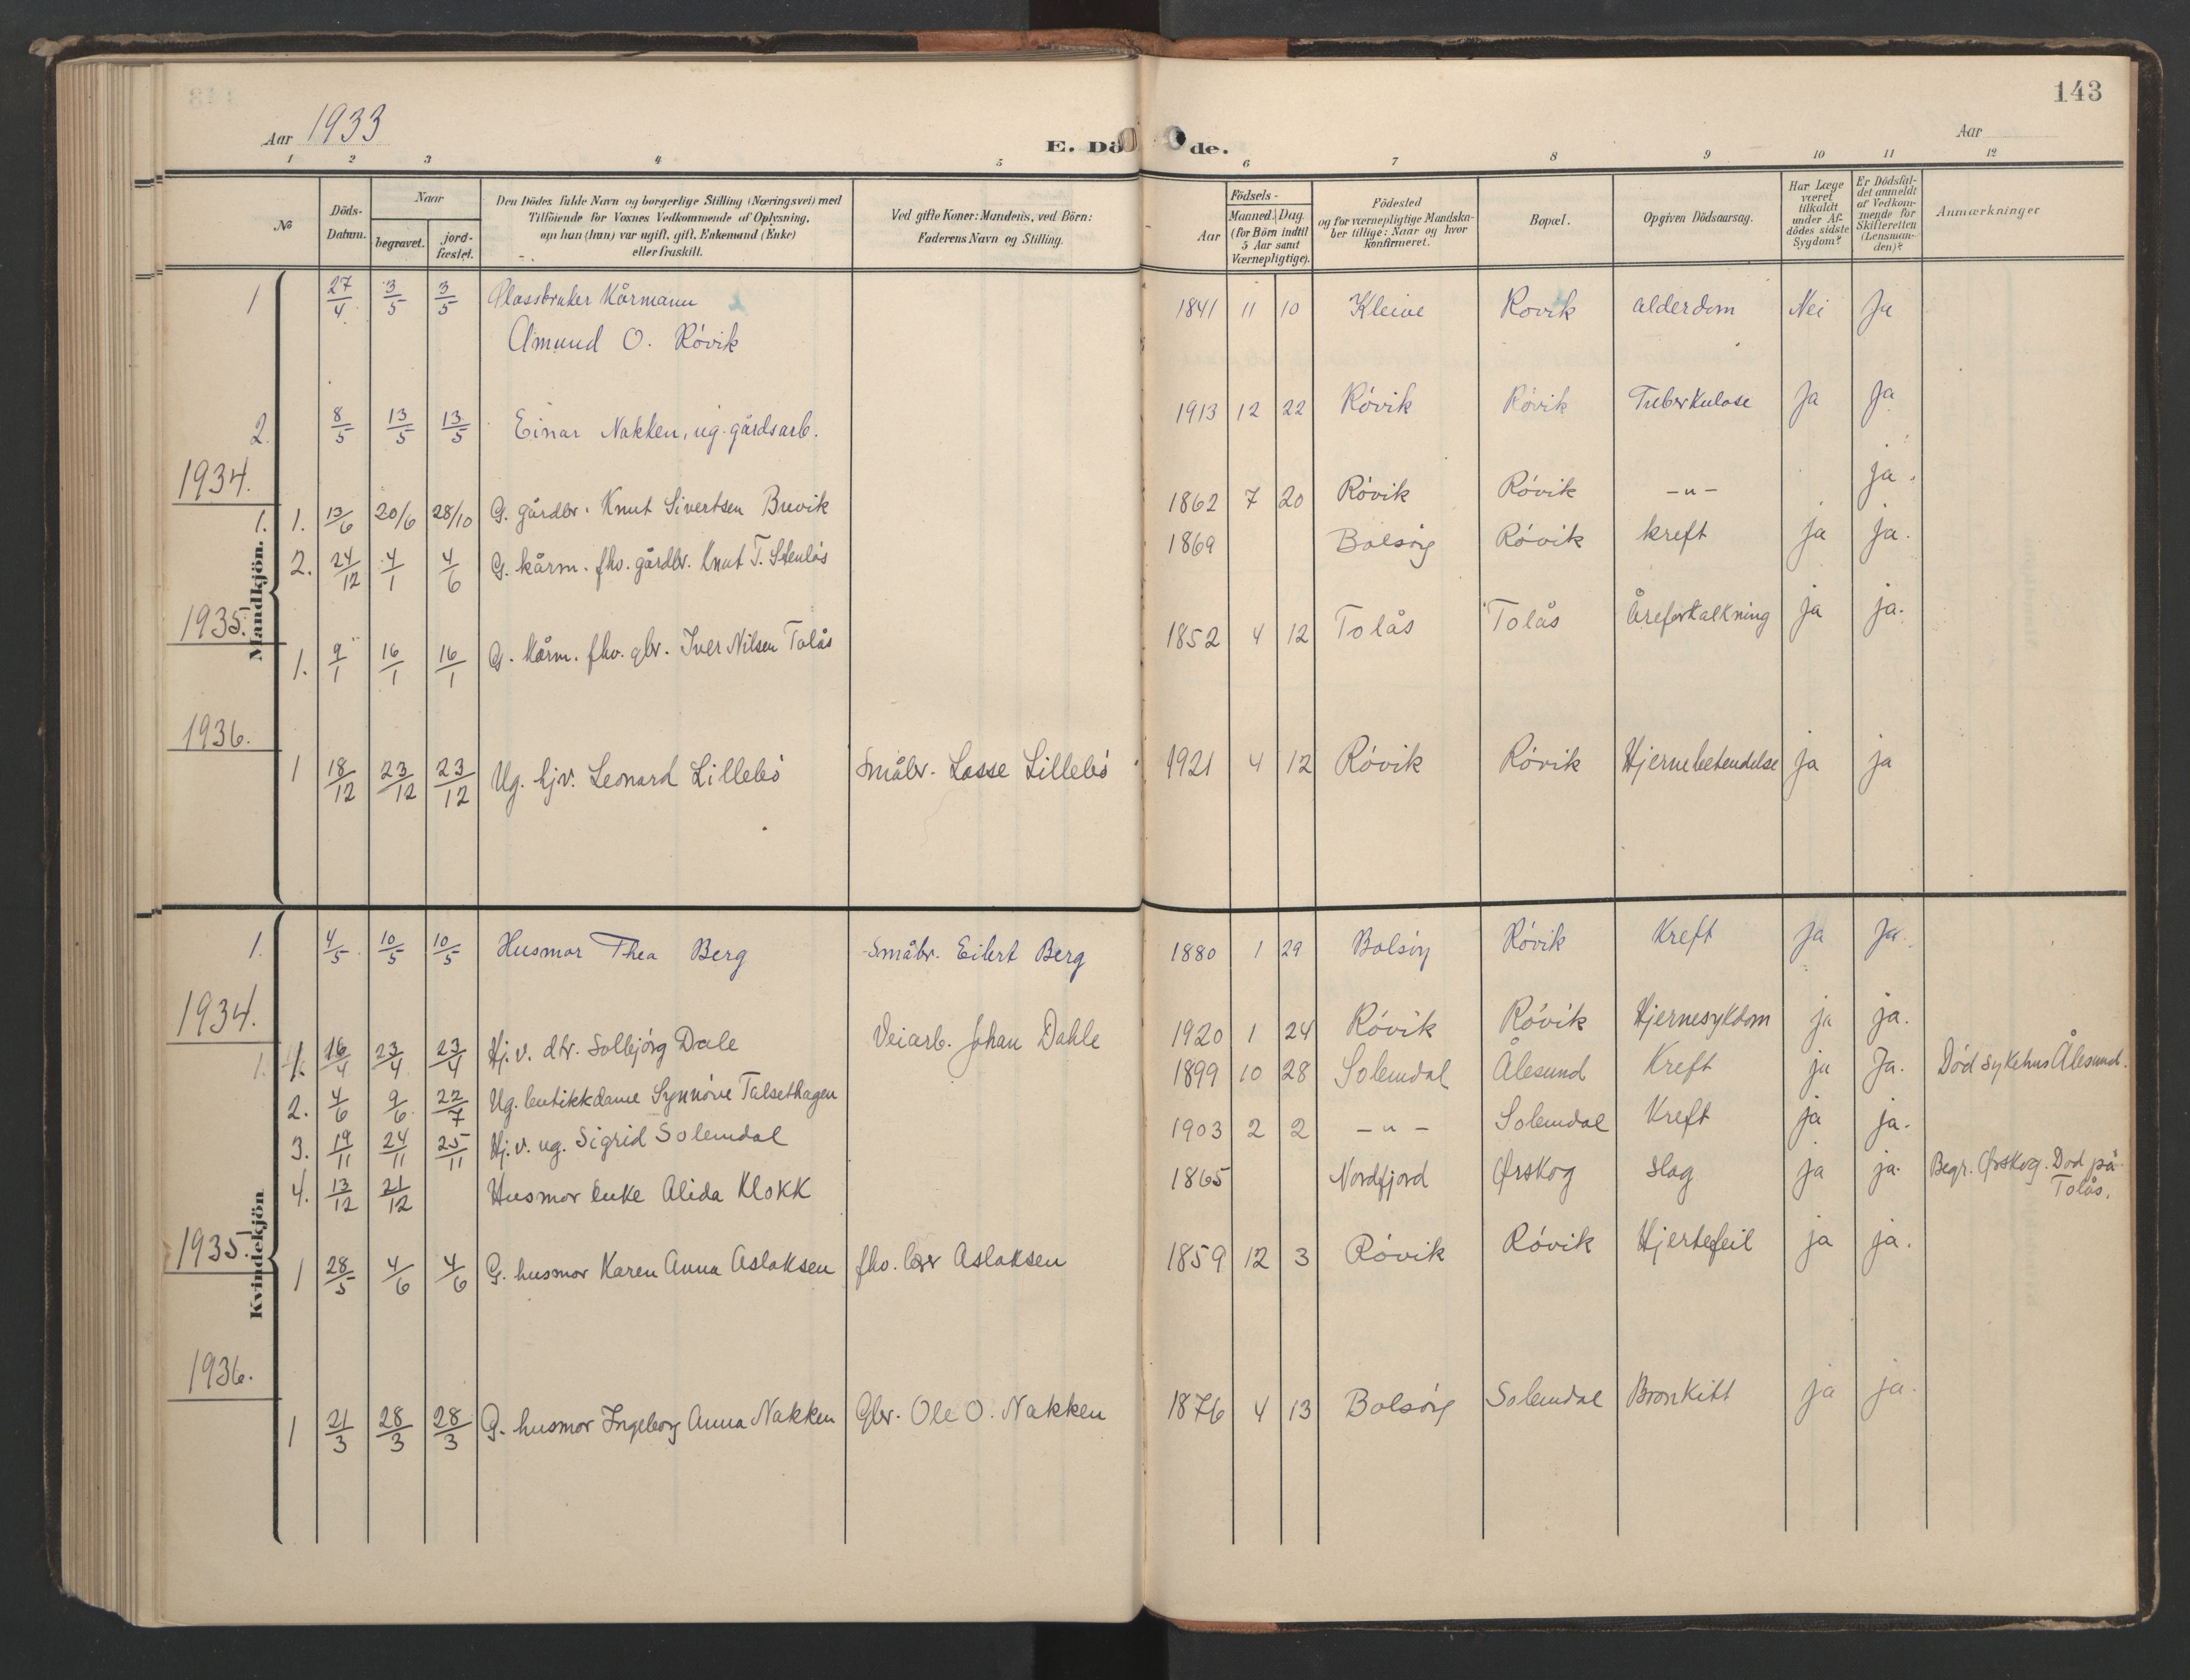 143
Aar 1933
E. Dö de.
Aar
1 2 3 4 5 6 7 8 9 10 11 12
№
Döds-Datum.
Naar
begravet.
jord-fæstet.
Den Dödes fulde Navn og borgerlige Stilling (Næringsvei) med
Tilföiende for Voxnes Vedkommende af Oplysning,
om han (hun) var ugift, gift, Enkemand (Enke)
eller fraskilt.
Ved gifte Koner: Mandens, ved Börn:
Faderens Navn og Stilling.
Födsels-
Aar
Maaned. Dag.
(for Börn indtil
5 Aar samt
Værnepligtige).
Födested
og for værnepligtige Mandska-
ber tillige: Naar og hvor
Konfirmeret.
Bopæl.
Opgiven Dödsaarsag.
Har Læge
været
tilkaldt
under Af-
dödes sidste
Sygdom?
Er Dödsfal-
det anmeldt
af Vedkom-
mende for
Skifteretten
(Lensman-
den)?
Anmærkninger
Mandkjön.
1 27/4 3/5 3/5 Plassbruker Kårmann 1841 11 10 Kleive Rovik alderdom Nei Ja
Amund O. Róvik
2. 8/5 13/5 13/5 Einar Nakken, ug. gårdsarb. 1913 12 22 Róvik Róvik Tuberkulose Ja Ja
1934.
1. 1. 13/6 20/6 28/10 G. gårdbr. Knut Sivertsen Brevik 1862 7 20 Róvik Róvik -"- ja.
2. 24/12 4/1 4/6 G. kårm. fhv. gårdbr. Knut T. Stenlós 1869 Bolsóy Róvik kreft ja ja.
1935.
1. 9/1 16/1 16/1 G. kårm. fhv. gbr. Iver Nilsen Tolås 1852 4 12 Tolås Tolås Åreforkalkning ja ja.
1936.
1 18/12 23/12 23/12 Ug. hjv. Leonard Lillebó Småbr. Lasse Lillebó 1921 4 12 Róvik Róvik Hjernebetendelse ja ja
Kvindekjön
1. 4/5 10/5 10/5 Husmor Thea Berg Småbr. Eilert Berg 1880 1 29 Bolsóy Róvik Kreft Ja Ja.
1934.
1. 1. 16/4 23/4 23/4 Hj. v. dtr. Solbjórg Dale Veiarb. Johan Dahle 1920 1 24 Róvik Róvik Hjernesykdom ja ja.
2. 4/6 9/6 22/7 Ug. butikkdame Synnóve Talsethagen 1899 10 28 Solemdal Ålesund Kreft ja Ja. Død sykehus Ålesund.
3. 19/11 24/11 25/11 Hj. v. ug. Sigrid Solemdal 1903 2 2 -"- Solemdal Kreft ja ja.
4. 13/12 21/12 Husmor enke Alida Klokk 1865 Nordfjord Ørskog slag ja ja. Begr. Ørskog. Død på
Tolås.
1935.
1 28/5 4/6 4/6 G. husmor Karen Anna Aslaksen fhv. Aslaksen 1859 12 3 Róvik Róvik Hjertefeil ja ja.
1936.
1 21/3 28/3 28/3 G. husmor Ingeborg Anna Nakken Gbr. Ole O. Nakken 1876 4 13 Bolsóy Solemdal Bronkitt ja ja.